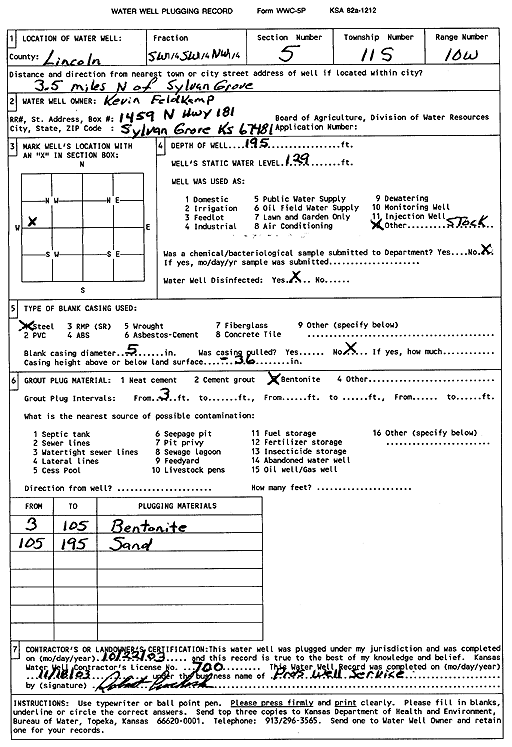 WATER WELL PLUGGING RECORD Form WWC-5P KSA 82a-1212
1 LOCATION OF WELL: Fraction Section Number Township Number Range Number
County: Lincoln SW1/4 SW1/4 NW1/4 5 11S 10W
Distance and direction from nearest town or city street address of well if located within city?
3.5 miles N of Sylvan Grove
2 WATER WELL OWNER: Kevin Feldkamp
RR#, St. Address, Box #: 1459 N Hwy 181 Board of Agriculture, Division of Water Resources
City, State, ZIP Code : Sylvan Grove Ks 67481 Application Number:
3 MARK WELL'S LOCATION WITH AN "X" IN SECTION BOX:
N
NW NE
X
W E
SW SE
S
4 DEPTH OF WELL..195......ft.
WELL'S STATIC WATER LEVEL.129....ft.
WELL WAS USED AS:
1 Domestic 5 Public Water Supply 9 Dewatering
2 Irrigation 6 Oil Field Water Supply 10 Monitoring Well
3 Feedlot 7 Lawn and Garden Only 11 Injection Well
4 Industrial 8 Air Conditioning X Other...Stock
Was a chemical/bacteriological sample submitted to Department? Yes....No.X.
If yes, mo/day/yr sample was submitted......................
Water Well Disinfected: Yes.X.. No......
5 TYPE OF BLANK CASING USED:
X Steel 3 RMP (SR) 5 Wrought 7 Fiberglass 9 Other (specify below)
2 PVC 4 ABS 6 Asbestos-Cement 8 Concrete Tile ........................
Blank casing diameter..5......in. Was casing pulled? Yes...... No.X.. If yes, how much..........
Casing height above or below land surface....-36.......in.
6 GROUT PLUG MATERIAL: 1 Neat cement 2 Cement grout X Bentonite 4 Other..............
Grout Plug Intervals: From..3..ft. to......ft., From......ft. to .....ft., From...... to......ft.
What is the nearest source of possible contamination:
1 Septic tank 6 Seepage pit 11 Fuel storage 16 Other (specify below)
2 Sewer lines 7 Pit privy 12 Fertilizer storage ........................
3 Watertight sewer lines 8 Sewage lagoon 13 Insecticide storage
4 Lateral lines 9 Feedyard 14 Abandoned water well
5 Cess Pool 10 Livestock pens 15 Oil well/Gas well
Direction from well? ..................... How many feet? .....................
FROM TO PLUGGING MATERIALS
3 105 Bentonite
105 195 Sand
7 CONTRACTOR'S OR LANDOWNER'S CERTIFICATION:This water well was plugged under my jurisdiction and was completed
on (mo/day/year).10/22/03..... and this record is true to the best of my knowledge and belief. Kansas
Water Well Contractor's License No. ..700......... This Water Well Record was completed on (mo/day/year)
..11/18/03........ under the business name of Pro's Well Service
by (signature)
INSTRUCTIONS: Use typewriter or ball point pen. Please press firmly and print clearly. Please fill in blanks,
underline or circle the correct answers. Send top three copies to Kansas Department of Health and Environment,
Bureau of Water, Topeka, Kansas 66620-0001. Telephone: 913/296-3565. Send one to Water Well Owner and retain
one for your records.